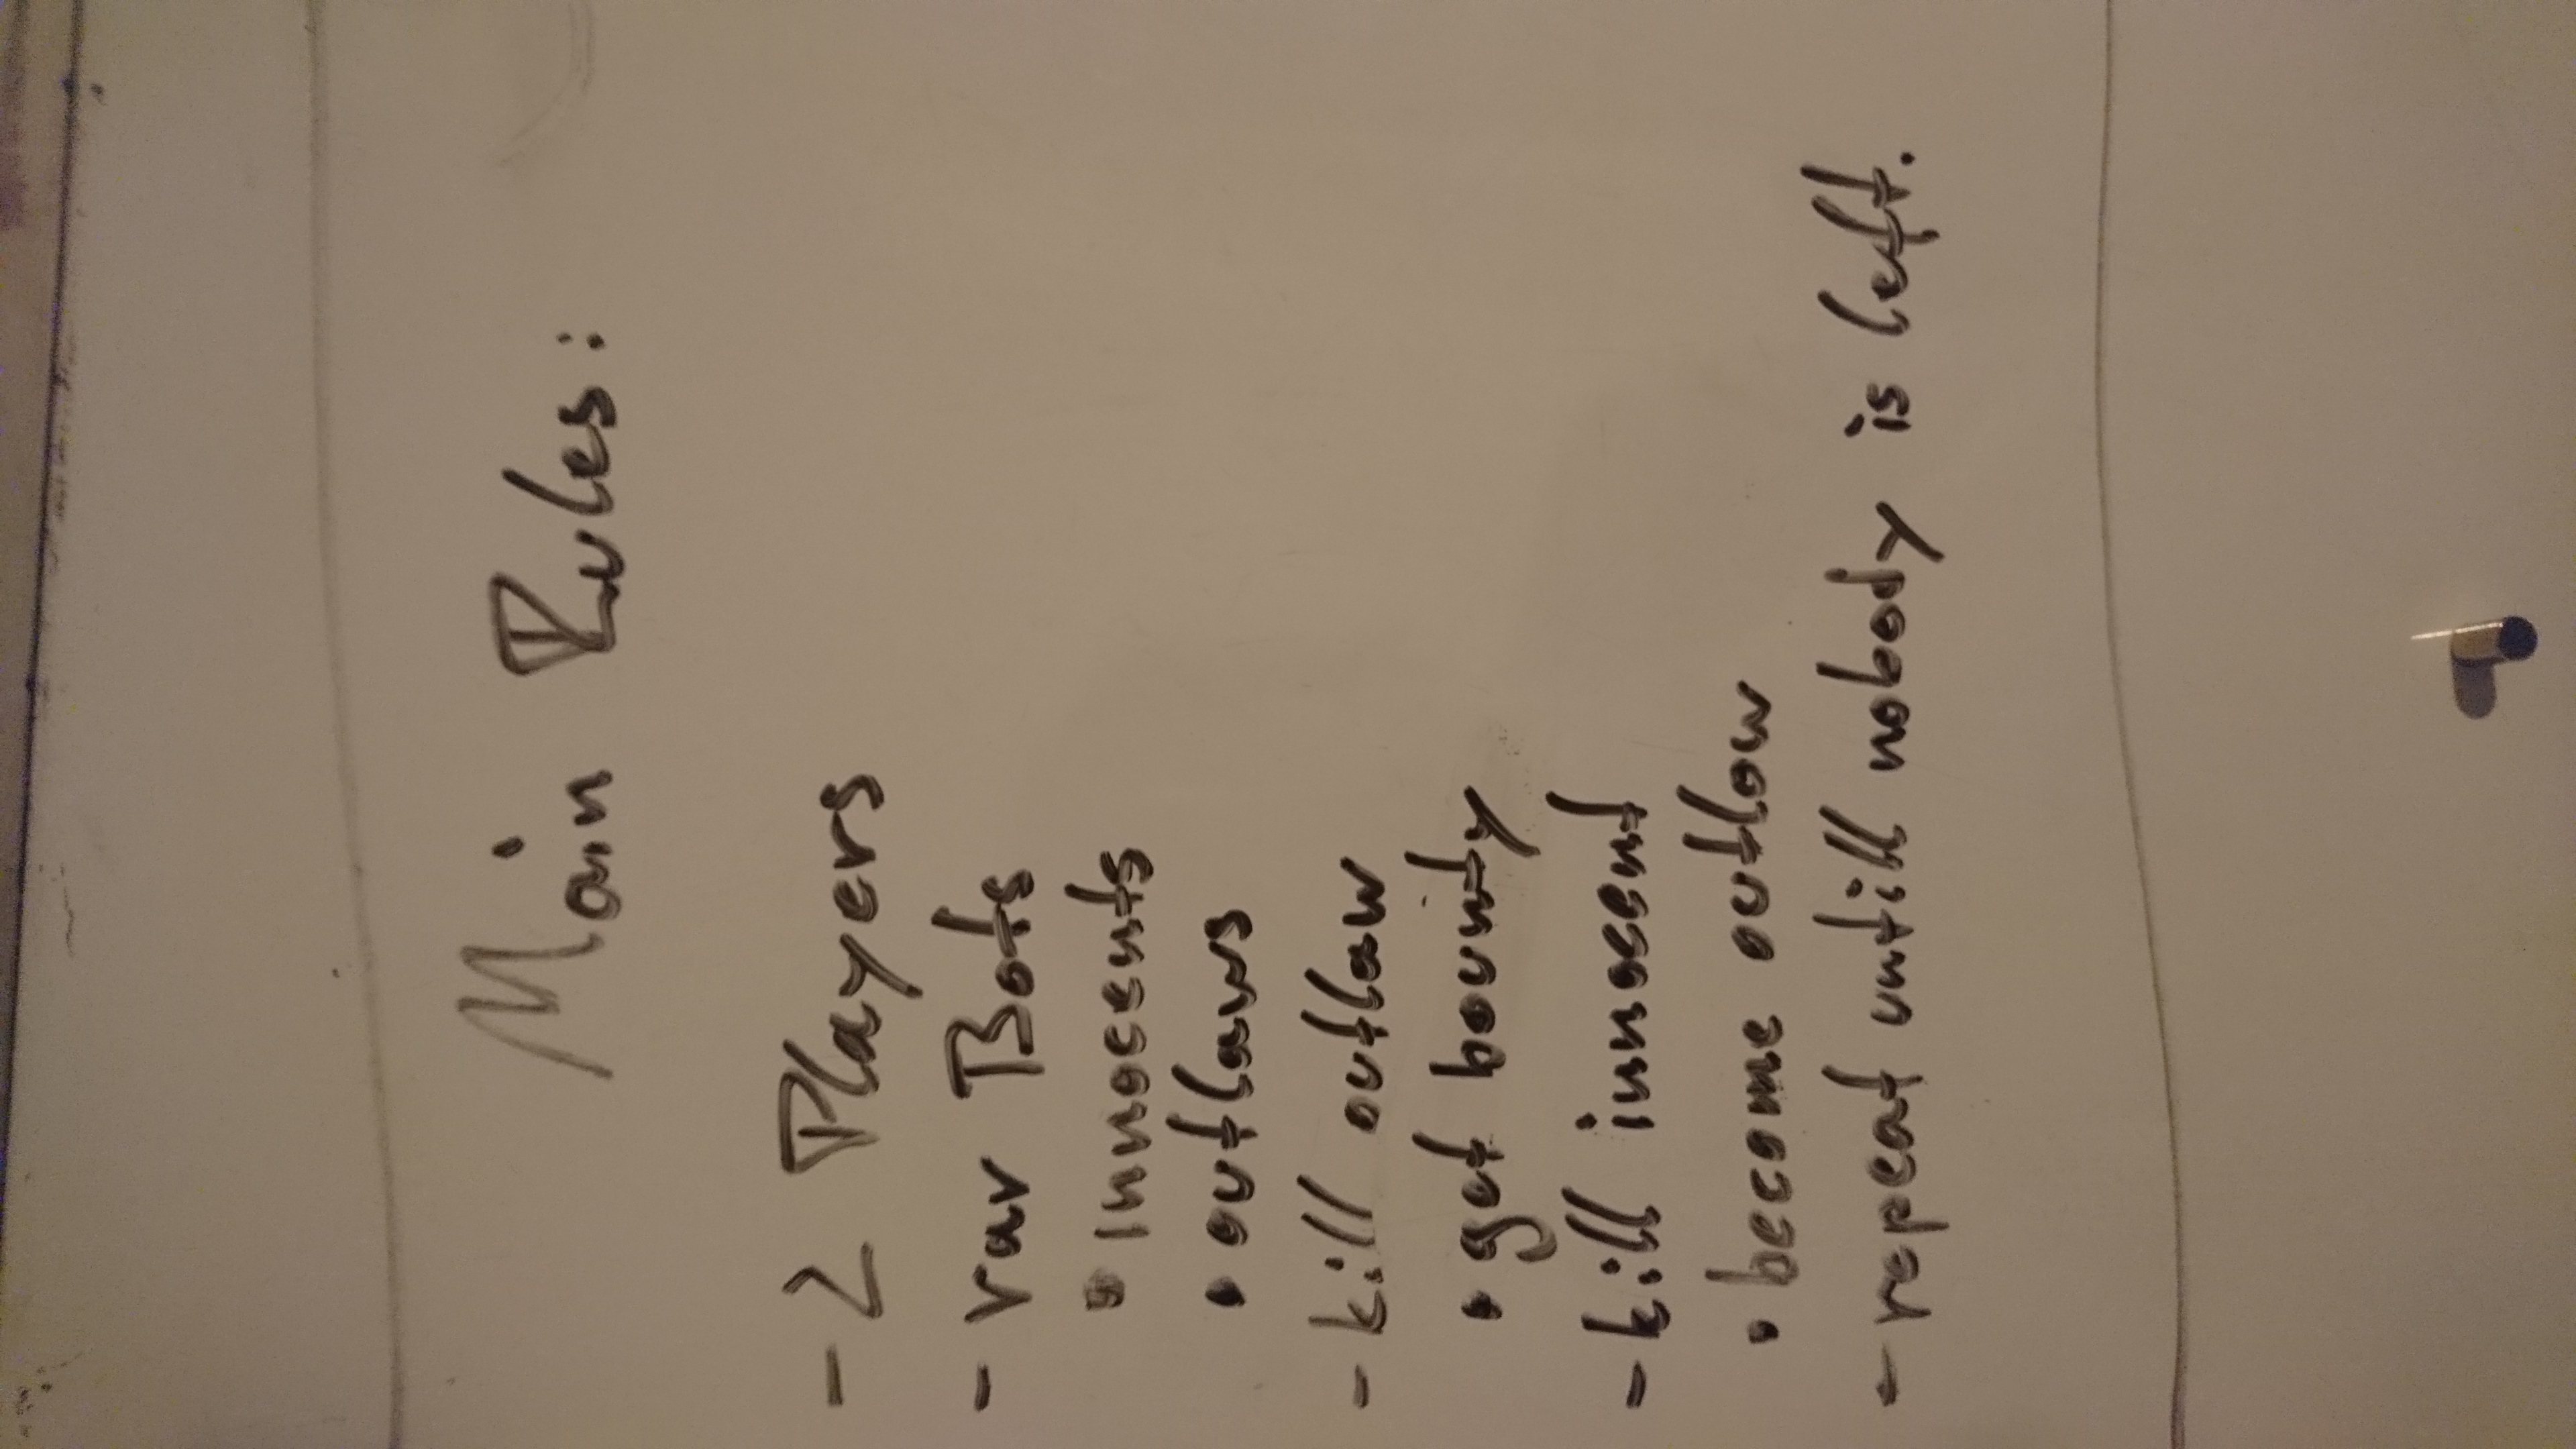 Main Rules:
- 2 Players
- var Bots
• innocents
• outlaws
- kill outlaw
• get bounty
- kill innocent
• become outlow
- repeat untill nobody is left.